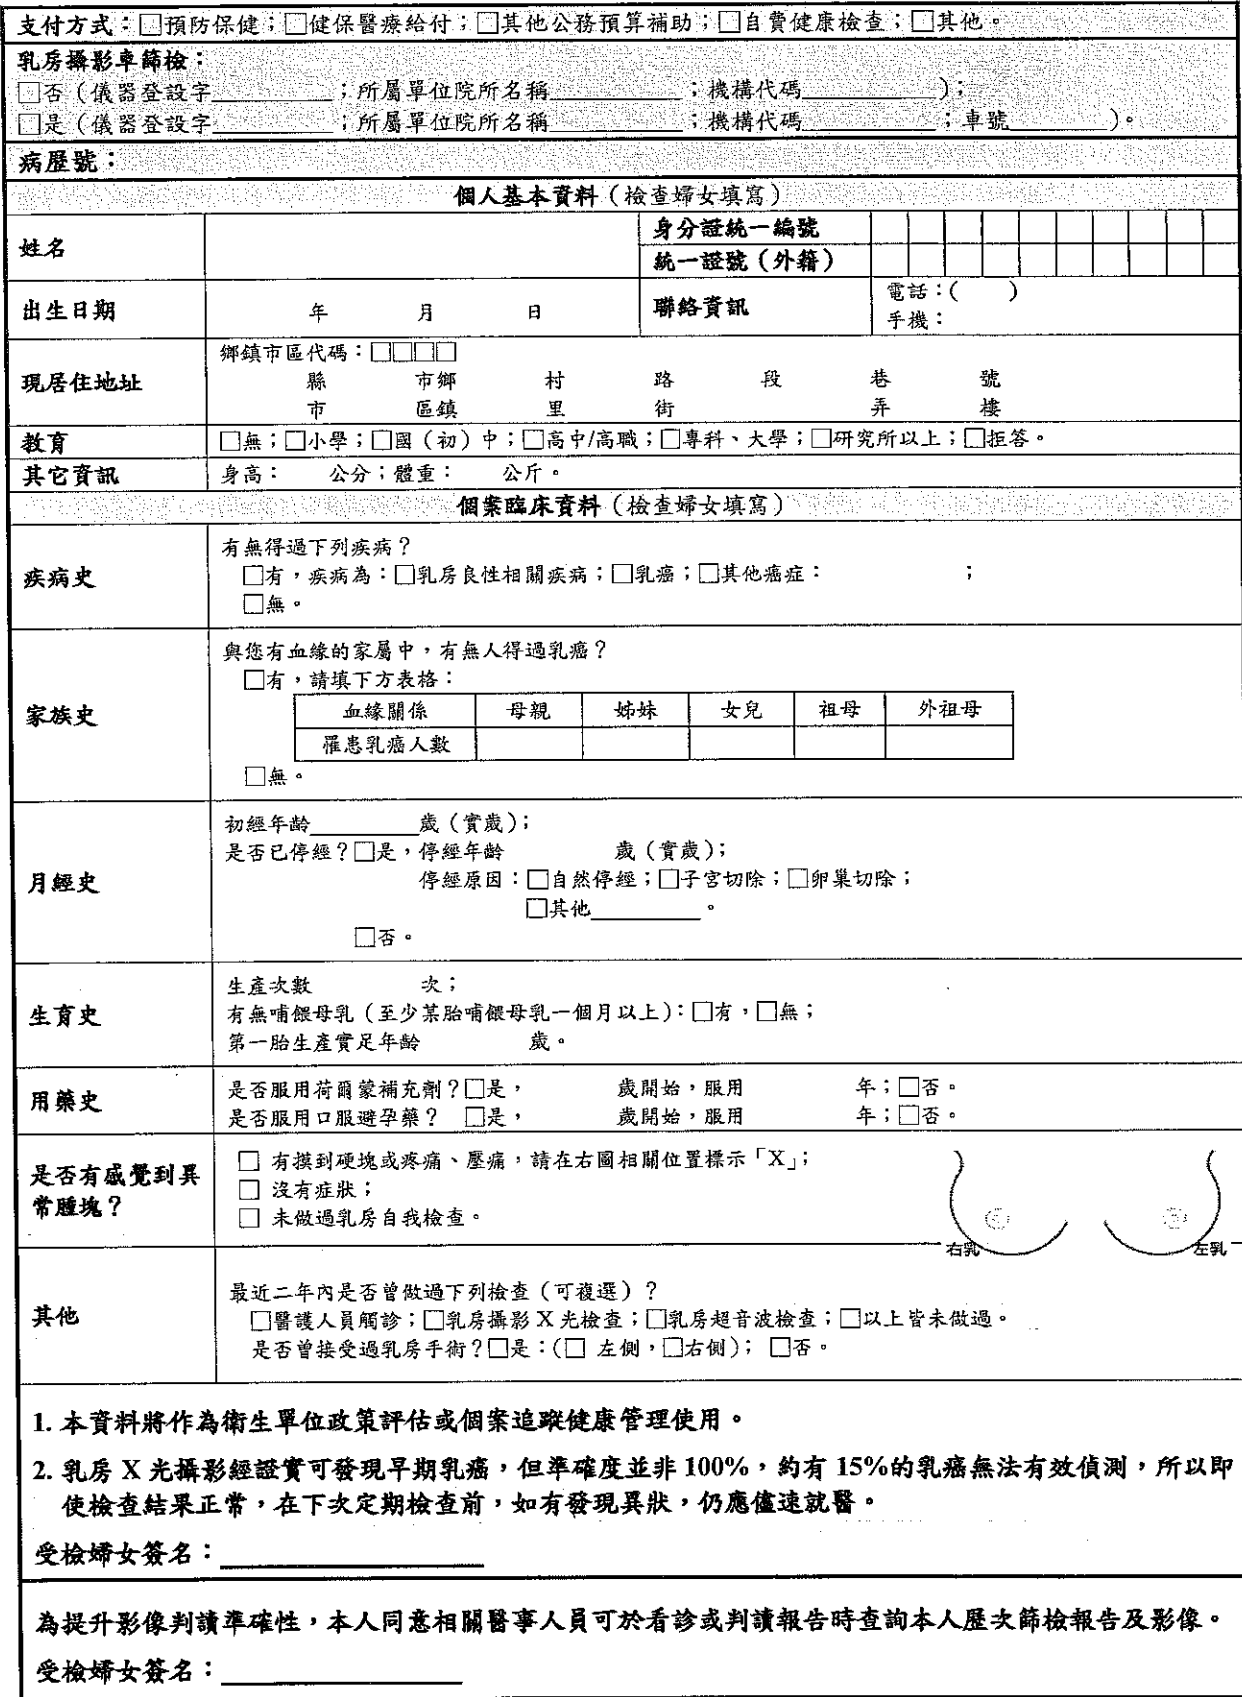 支付方式：□預防保健；□健保醫療給付；□其他公務預算補助；□自費健康檢查；□其他。
乳房攝影車篩檢：
□否（儀器登設字__________；所屬單位院所名稱__________；機構代碼__________）；
□是（儀器登設字__________；所屬單位院所名稱__________；機構代碼__________；車號________）。
病歷號：
個人基本資料（檢查婦女填寫）
姓名 身分證統一編號
統一證號（外籍）
出生日期 年 月 日 聯絡資訊 電話：( )
手機：
現居住地址 鄉鎮市區代碼：□□□□
縣 市鄉 村 路 段 巷 號
市 區鎮 里 街 弄 樓
教育 □無；□小學；□國（初）中；□高中/高職；□專科、大學；□研究所以上；□拒答。
其它資訊 身高： 公分；體重： 公斤。
個案臨床資料（檢查婦女填寫）
疾病史 有無得過下列疾病？
□有，疾病為：□乳房良性相關疾病；□乳癌；□其他癌症： ；
□無。
家族史 與您有血緣的家屬中，有無人得過乳癌？
□有，請填下方表格：
血緣關係 母親 姊妹 女兒 祖母 外祖母
罹患乳癌人數
□無。
月經史 初經年齡_________歲（實歲）；
是否已停經？□是，停經年齡 歲（實歲）；
停經原因：□自然停經；□子宮切除；□卵巢切除；
□其他_________。
□否。
生育史 生產次數 次；
有無哺餵母乳（至少某胎哺餵母乳一個月以上）：□有，□無；
第一胎生產實足年齡 歲。
用藥史 是否服用荷爾蒙補充劑？□是， 歲開始，服用 年；□否。
是否服用口服避孕藥？ □是， 歲開始，服用 年；□否。
是否有感覺到異常腫塊？ □ 有摸到硬塊或疼痛、壓痛，請在右圖相關位置標示「X」；
□ 沒有症狀；
□ 未做過乳房自我檢查。
右乳 左乳
其他 最近二年內是否曾做過下列檢查（可複選）？
□醫護人員觸診；□乳房攝影 X 光檢查；□乳房超音波檢查；□以上皆未做過。
是否曾接受過乳房手術？□是：(□ 左側，□右側)； □否。
1. 本資料將作為衛生單位政策評估或個案追蹤健康管理使用。
2. 乳房 X 光攝影經證實可發現早期乳癌，但準確度並非 100%，約有 15%的乳癌無法有效偵測，所以即
使檢查結果正常，在下次定期檢查前，如有發現異狀，仍應儘速就醫。
受檢婦女簽名：____________________
為提升影像判讀準確性，本人同意相關醫事人員可於看診或判讀報告時查詢本人歷次篩檢報告及影像。
受檢婦女簽名：____________________